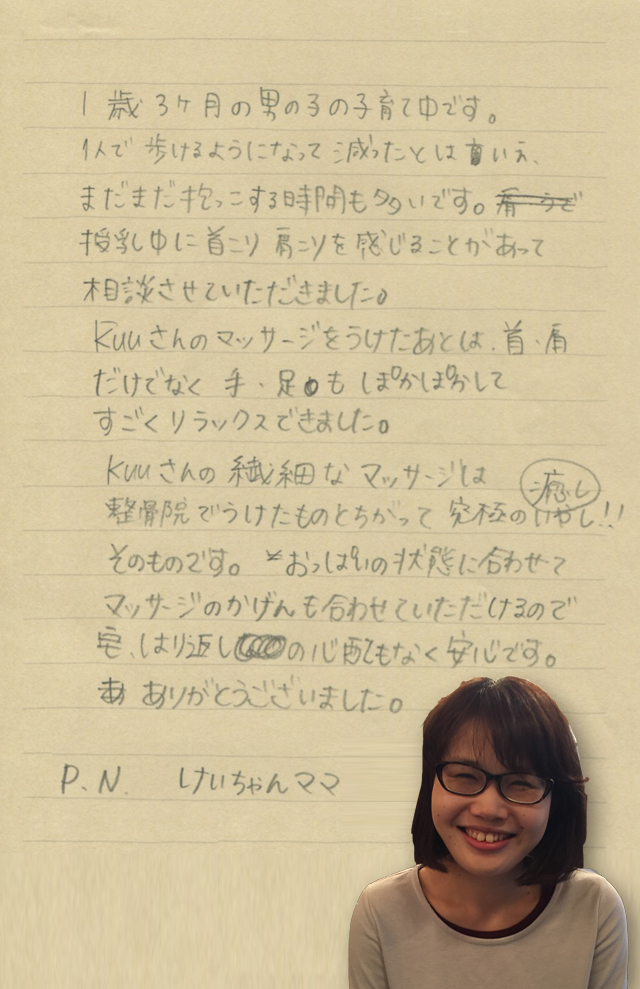 1歳3ヶ月の男の子の子育て中です。
1人で歩けるようになって減ったとは言いえ、
まだまだ抱っこする時間も多いです。
授乳中に首こり肩こりを感じることがあって
相談させていただきました。
Kuuさんのマッサージをうけたあとは、首・肩
だけでなく 手・足も ぽかぽかして
すごくリラックスできました。
Kuuさんの繊細なマッサージは
整骨院でうけたものとちがって 究極の癒し!!
そのものです。 おっぱいの状態に合わせて
マッサージのかげんも合わせていただけるので
はり返しの心配もなく安心です。
ありがとうございました。
P.N. けいちゃんママ